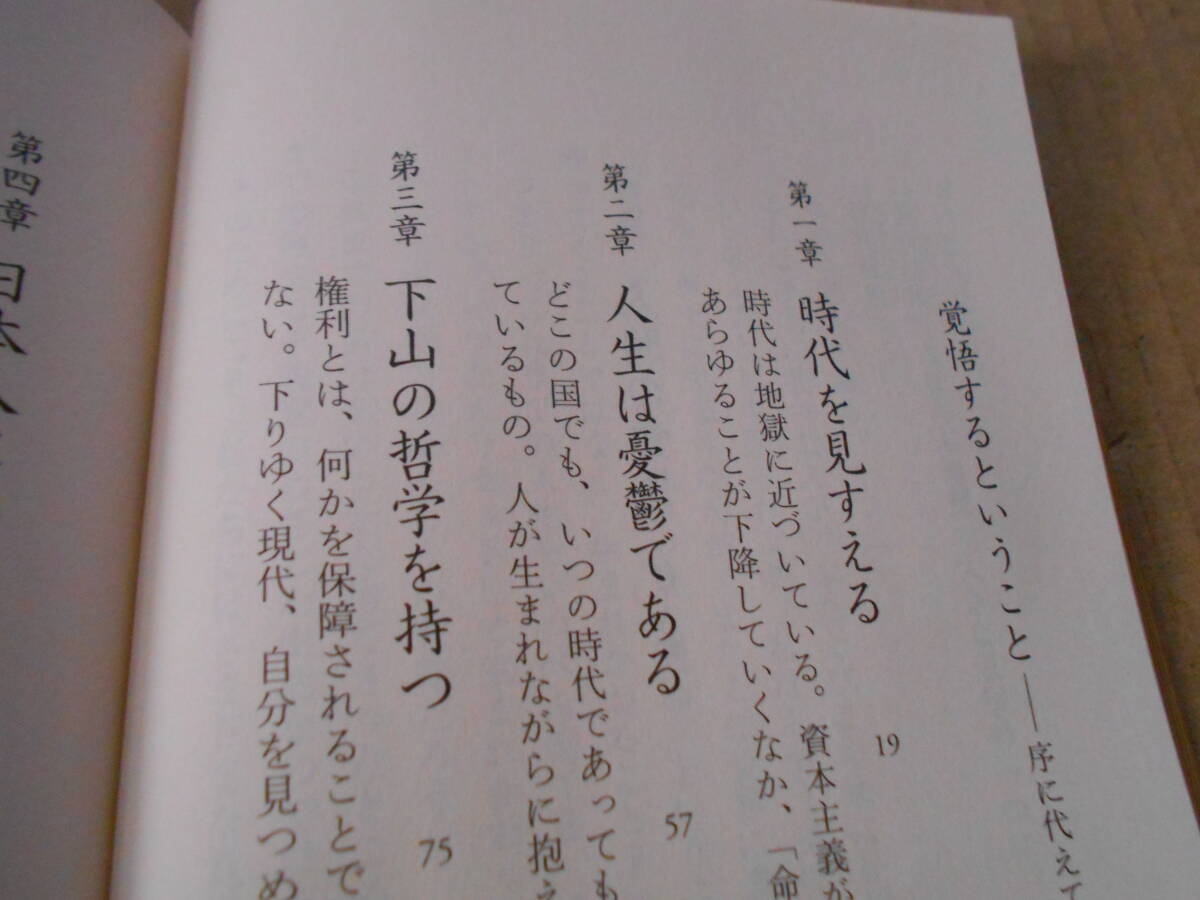 覚悟するということ——序に代えて
第一章 時代を見すえる 19
時代は地獄に近づいている。資本主義が
あらゆることが下降していくなか、「命
第二章 人生は憂鬱である 57
どこの国でも、いつの時代であっても
ているもの。人が生まれながらに抱え
第三章 下山の哲学を持つ 75
権利とは、何かを保障されることで
ない。下りゆく現代、自分を見つめ
第四章 日本人